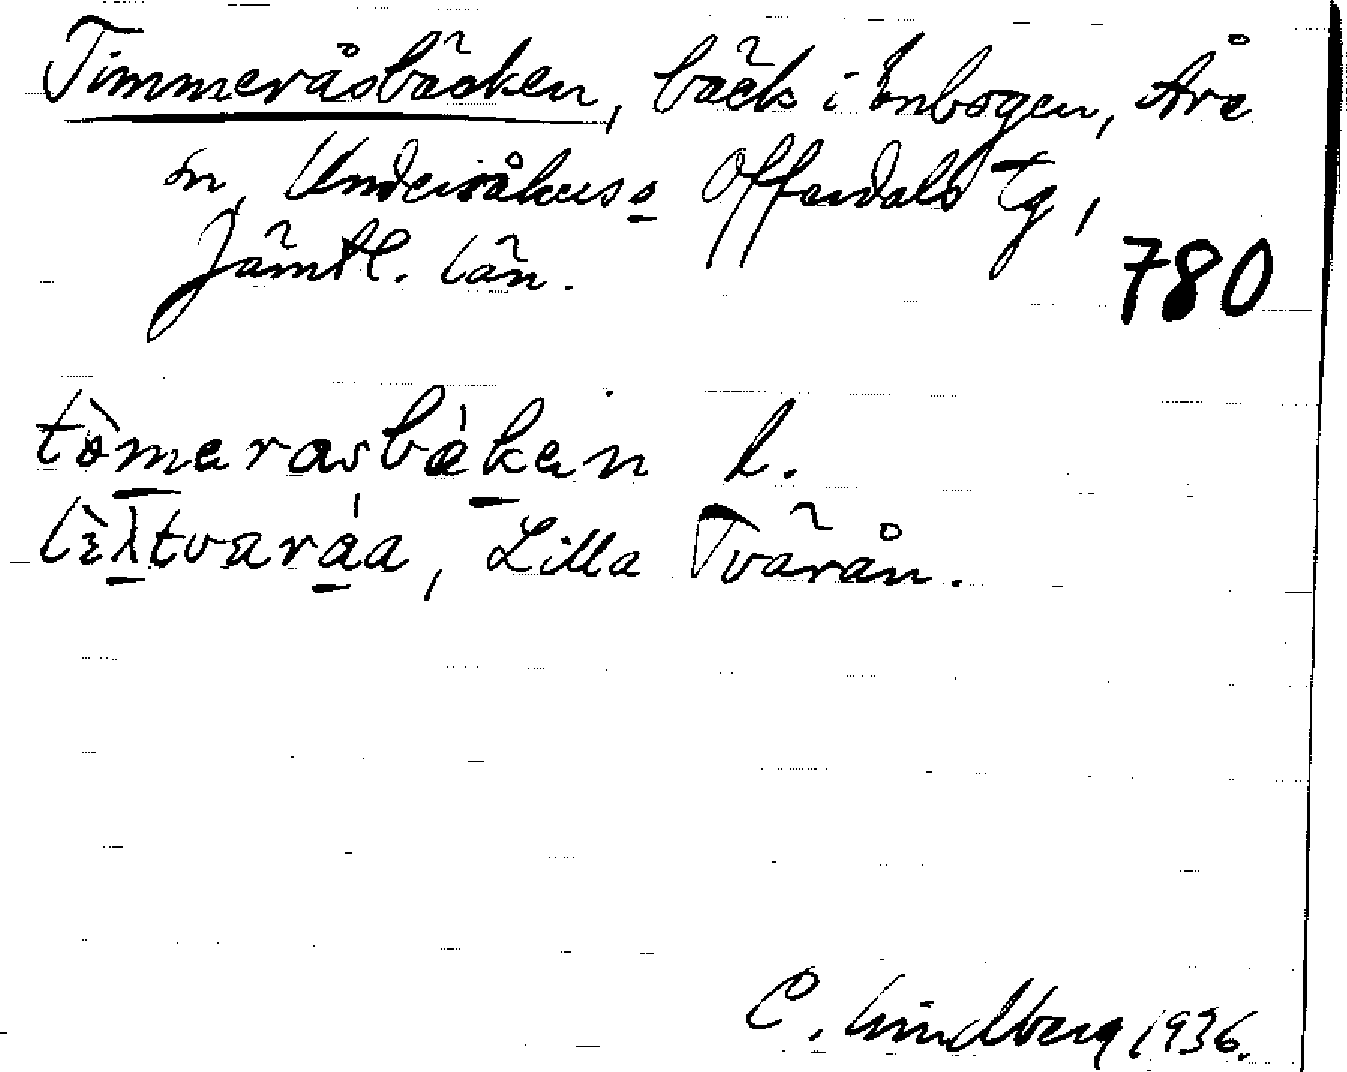 Timmeråsbäcken, bäck i Enbogen, Åre
sn, Undersåkers o Offerdals tg,
Jämtl. län.
780
tòmərasbèkən l.
lìltvaráa, Lilla Tvärån.
C. Lindberg 1936.